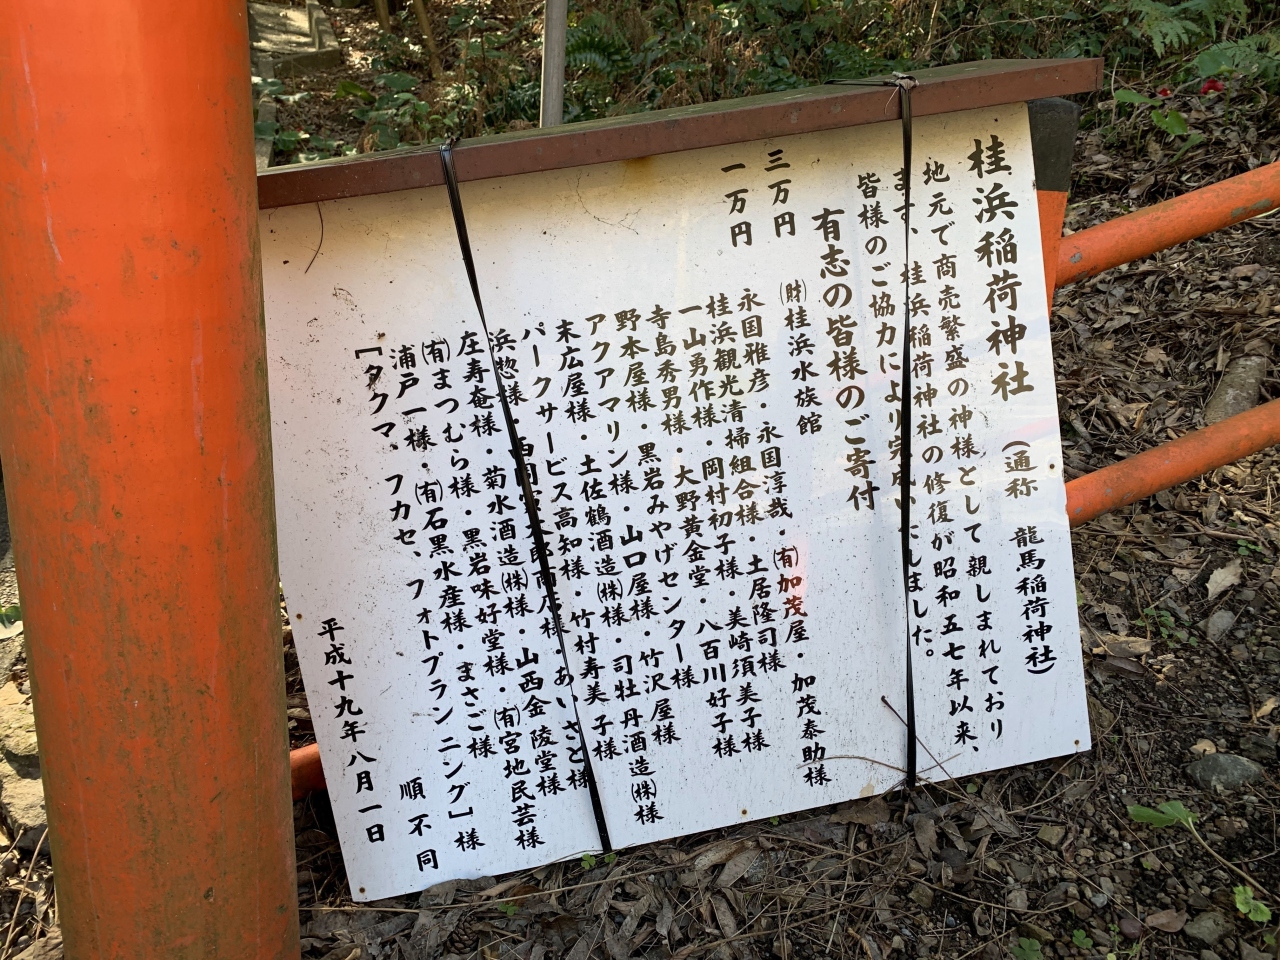 桂浜稲荷神社 (通称 龍馬稲荷神社)
地元で商売繁盛の神様として親しまれており
ます、桂浜稲荷神社の修復が昭和五七年以来、
皆様のご協力により完成いたしました。
有志の皆様のご寄付
三万円 ㈶桂浜水族館
一万円 永国雅彦・永国淳哉・㈲加茂屋・加茂泰助様
桂浜観光清掃組合様・土居隆司様
一山勇作様・岡村初子様・美崎須美子様
寺島秀男様・大野黄金堂・八百川好子様
野本屋様・黒岩みやげセンター様
アクアマリン様・山口屋様・竹沢屋様
末広屋様・土佐鶴酒造㈱様・司牡丹酒造㈱様
パークサービス高知様・竹村寿美子様
浜惣様 商店様・あいさと様
庄寿奄様・菊水酒造㈱様・山西金陵堂様
㈲まつむら様・黒岩味好堂様・㈲宮地民芸様
浦戸一様・㈲石黒水産様・まさご様
[タクマ、フカセ、フォトプランニング]様
順不同
平成十九年八月一日